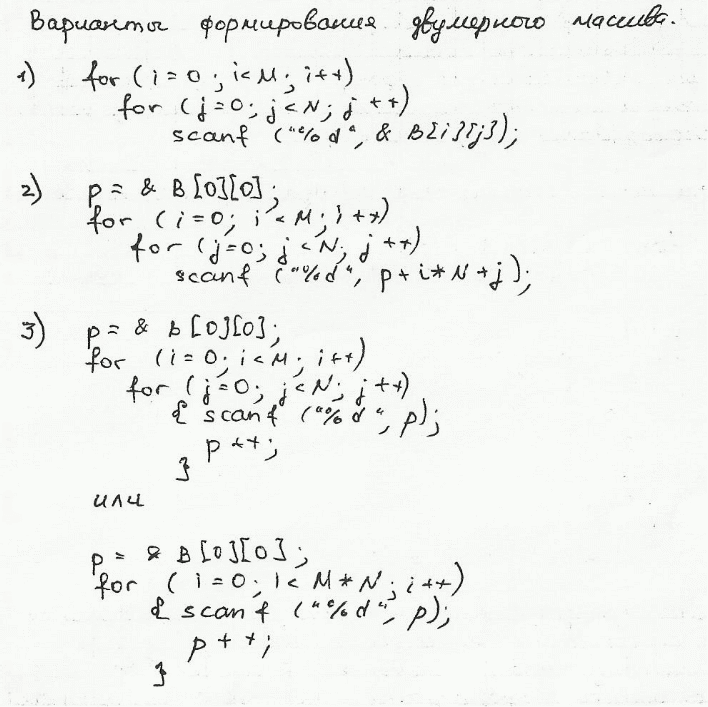 Варианты формирования двумерного массива.
1) for (i = 0 ; i < M ; i++)
for (j = 0; j < N; j ++)
scanf ("%d", & B[i][j]);
2) p = & B [0][0];
for (i = 0; i < M; i ++)
for (j=0; j < N; j ++)
scanf ("%d", p + i * N + j);
3) p = & B [0][0];
for (i = 0; i < M; i ++)
for (j = 0; j < N; j ++)
{ scanf ("%d", p);
p ++;
}
или
p = & B [0][0];
for (i = 0; i < M * N; i ++)
{ scanf ("%d", p);
p + +;
}